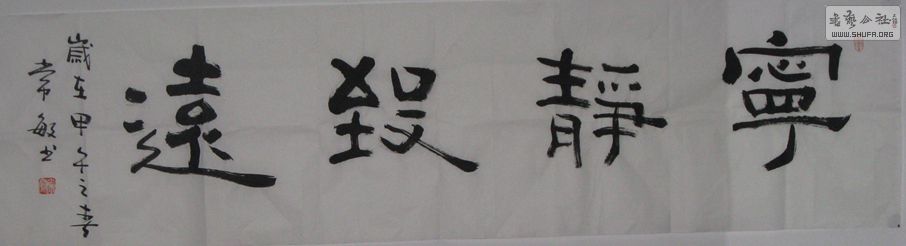 寧靜致遠
歲在甲午之春
常敏书
书艺公社
WWW.SHUFA.ORG